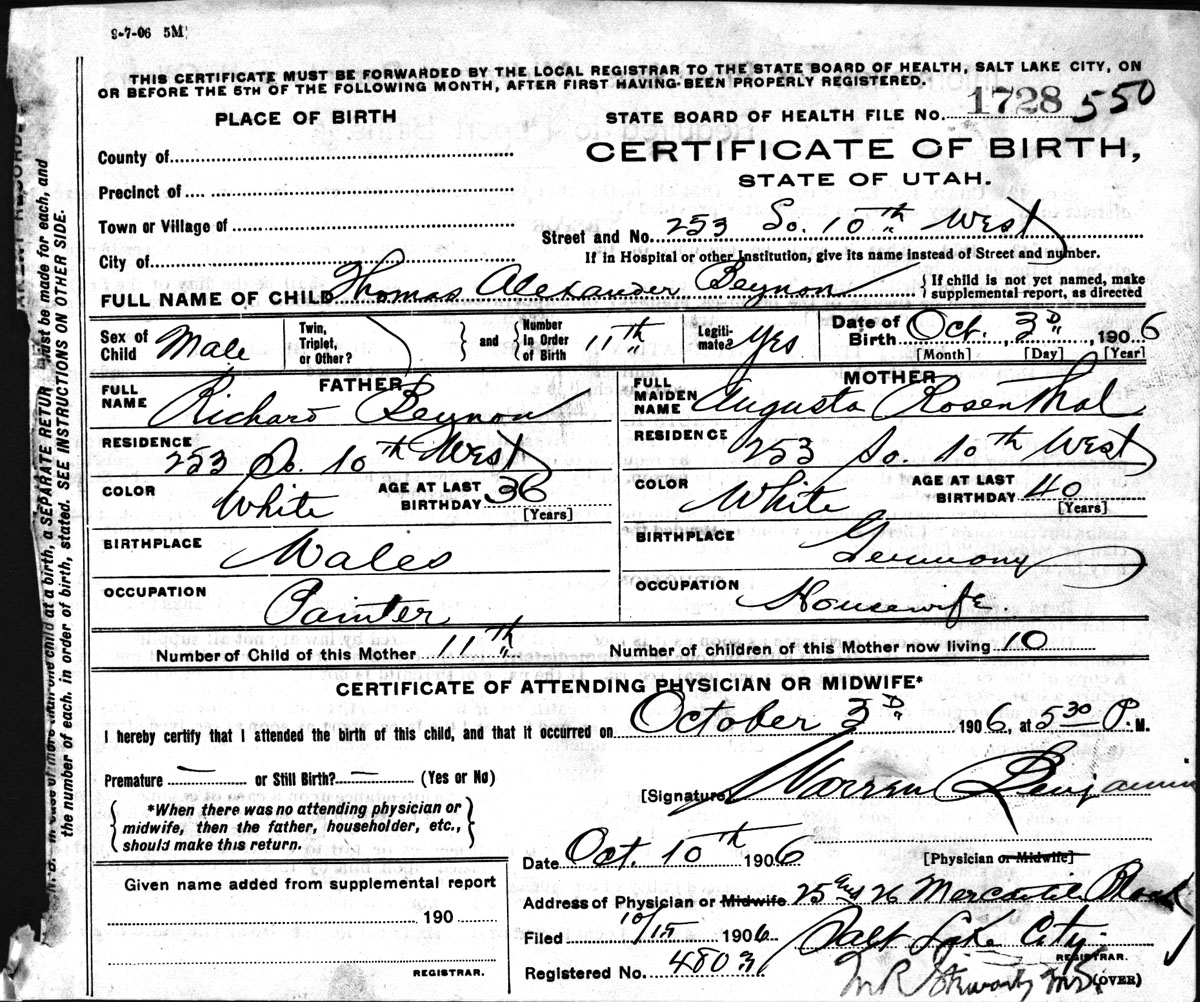 9-7-06 5M
THIS CERTIFICATE MUST BE FORWARDED BY THE LOCAL REGISTRAR TO THE STATE BOARD OF HEALTH, SALT LAKE CITY, ON
OR BEFORE THE 5TH OF THE FOLLOWING MONTH, AFTER FIRST HAVING BEEN PROPERLY REGISTERED.
PLACE OF BIRTH
STATE BOARD OF HEALTH FILE No. 1728 550
CERTIFICATE OF BIRTH,
STATE OF UTAH.
County of
Precinct of
Town or Village of
City of
Street and No. 253 So. 10th West
If in Hospital or other Institution, give its name instead of Street and number.
FULL NAME OF CHILD Thomas Alexander Beynon { If child is not yet named, make supplemental report, as directed
Sex of Child Male Twin, Triplet, or Other? } and { Number In Order of Birth 11th Legitimate? Yes Date of Birth Oct. 3D, 1906
[Month] [Day] [Year]
FATHER
FULL NAME Richard Beynon
RESIDENCE 253 So. 10th West
COLOR White AGE AT LAST BIRTHDAY 36
[Years]
BIRTHPLACE Wales
OCCUPATION Painter
MOTHER
FULL MAIDEN NAME Augusta Rosenthal
RESIDENCE 253 So. 10th West
COLOR White AGE AT LAST BIRTHDAY 40
[Years]
BIRTHPLACE Germany
OCCUPATION Housewife.
Number of Child of this Mother 11th Number of children of this Mother now living 10
CERTIFICATE OF ATTENDING PHYSICIAN OR MIDWIFE*
I hereby certify that I attended the birth of this child, and that it occurred on October 3D 1906, at 5 30 P. M.
Premature — or Still Birth? — (Yes or No)
[Signature] Warren Benjamin
{ *When there was no attending physician or
midwife, then the father, householder, etc.,
should make this return. }
Date Oct. 10th 1906 [Physician or Midwife]
Given name added from supplemental report
190
REGISTRAR.
Address of Physician or Midwife 25 and 26 Mercantile Block
Salt Lake City.
Filed 10/15 1906
REGISTRAR.
Registered No. 4803
(OVER)
a SEPARATE RETURN must be made for each, and
the number of each, in order of birth, stated. SEE INSTRUCTIONS ON OTHER SIDE.